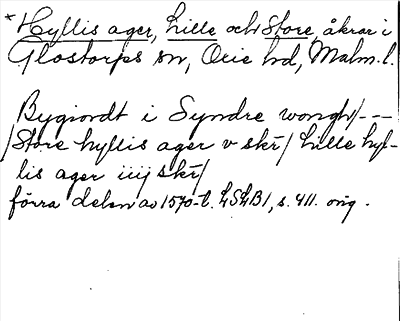 *Hyllis ager, Lille och Store, åkrar i
Glostorps sn, Oxie hd, Malm. l.
Bygiordt i Syndre wongh/---
/Store hyllis ager v skr/ Lille hyl-
lis ager iiij skr/
förra delen av 1570-t. LSLB1, s. 411. orig.